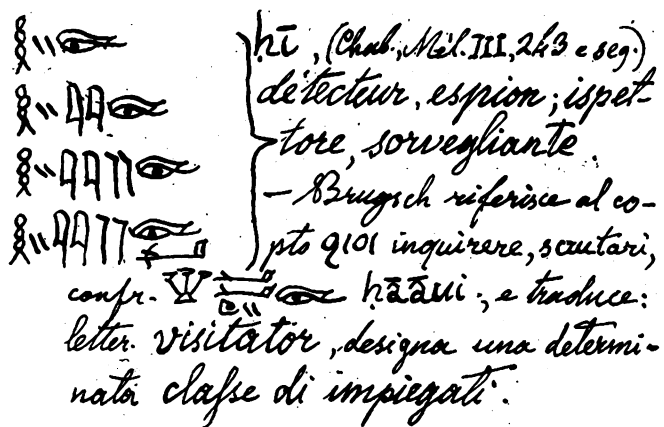 ḥī, (Chab., Mél. III, 243 e seg.)
détecteur, espion; ispet-
tore, sorvegliante.
— Brugsch riferisce al co-
pto ϩιοι inquirere, scrutari,
confr. ḥāāui., e traduce:
letter. visitator, designa una determi-
nata classe di impiegati.